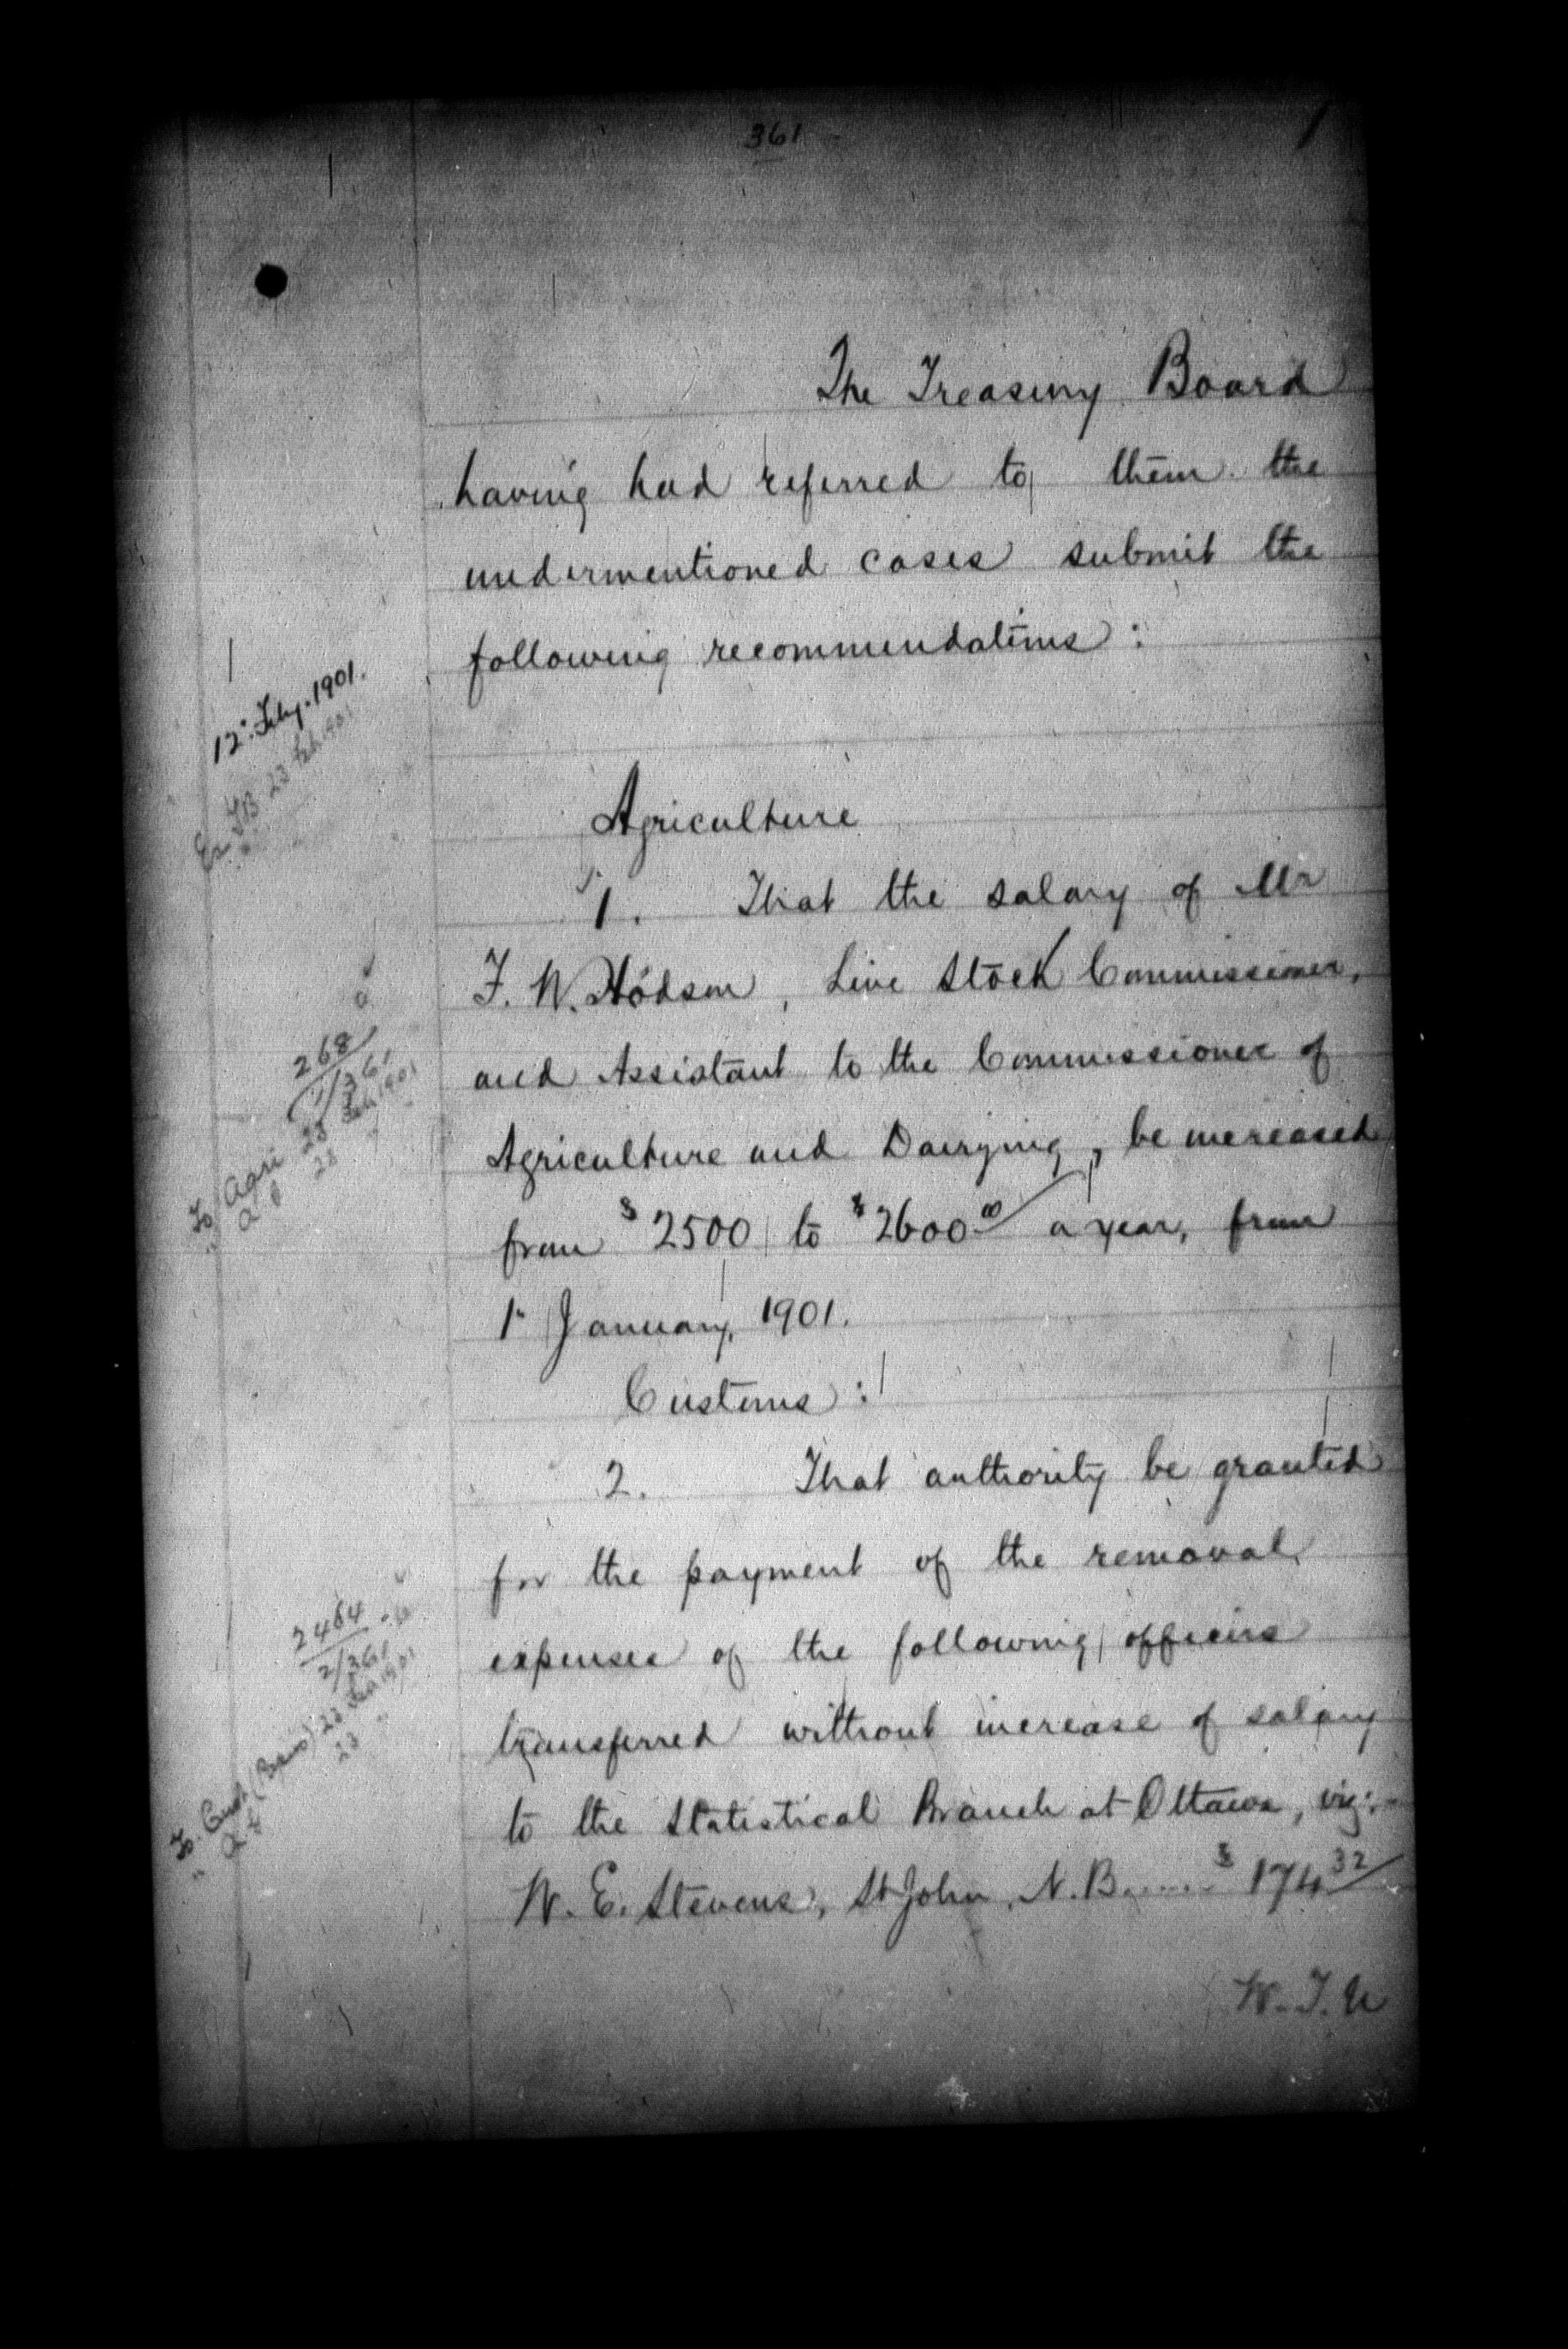 361
The Treasury Board
having had referred to them the
undermentioned cases submit the
following recommendations:
12". Feby. 1901.
Ex TB 23 Feb 1901
Agriculture
1. That the salary of Mr
F. W. Hodson, Live Stock Commissioner,
and Assistant to the Commissioner of
Agriculture and Dairying, be increased
from $2500 to $2600.00 a year, from
1" January, 1901.
268
1/361
To Agri 23 Feb 1901
" 23 "
Customs:
2. That authority be granted
for the payment of the removal
expenses of the following officers
transferred without increase of salary
to the Statistical Branch at Ottawa, viz:-
W. E. Stevens, St John, N.B. ...... $174.32
2464
2/361
To Cust 23 Feb 1901
" 23 "
W. J. N